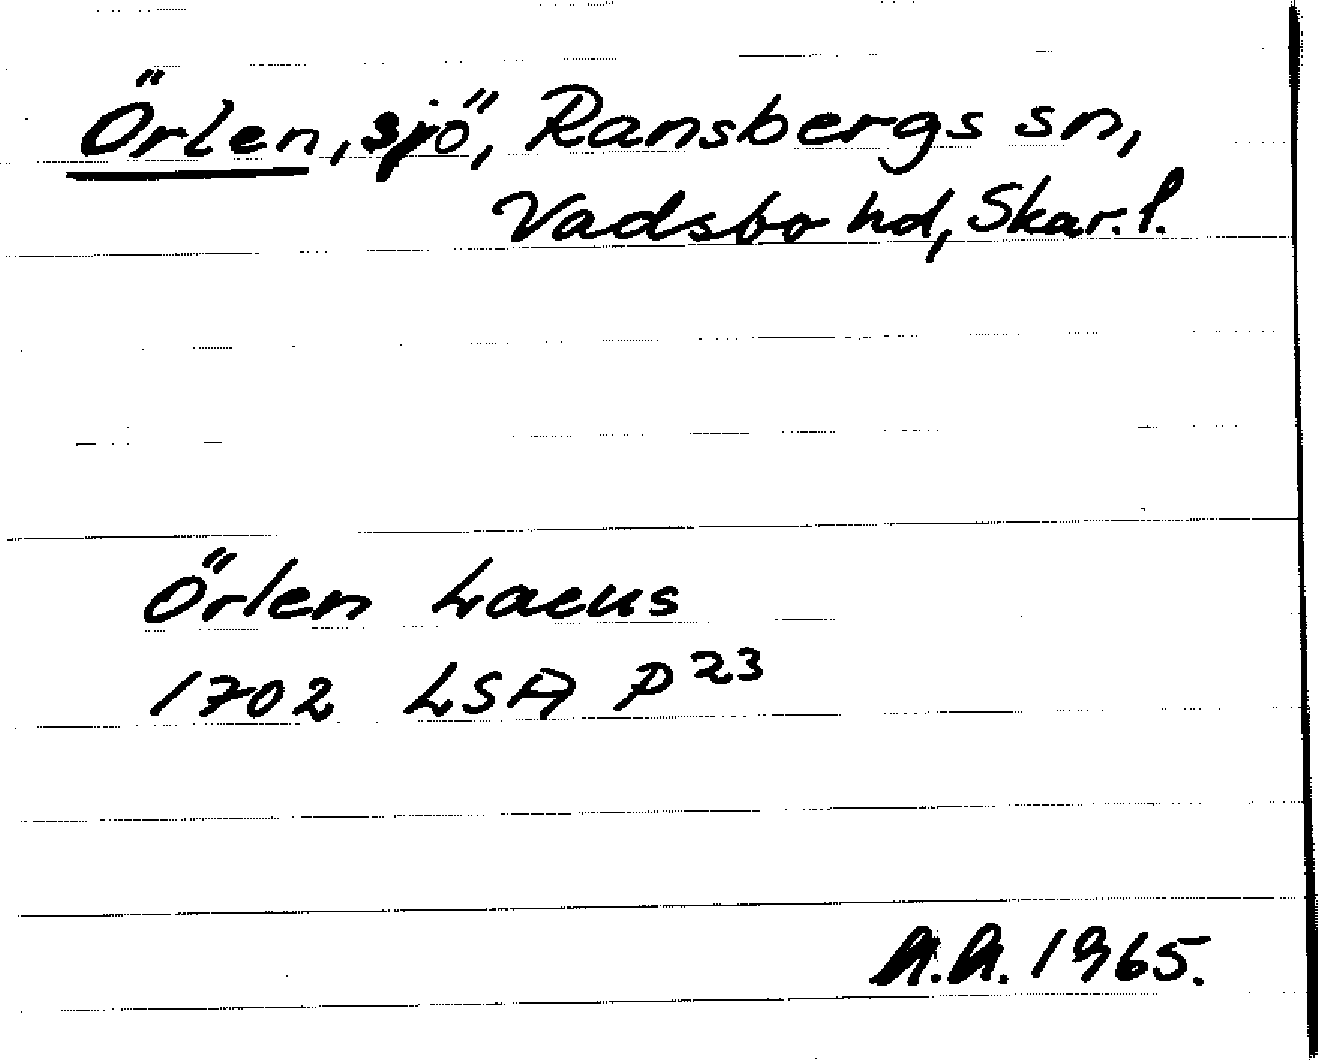 Örlen, sjö, Ransbergs sn,
Vadsbo hd, Skar. l.
Örlen Lacus
1702 LSA P 23
A.A. 1965.